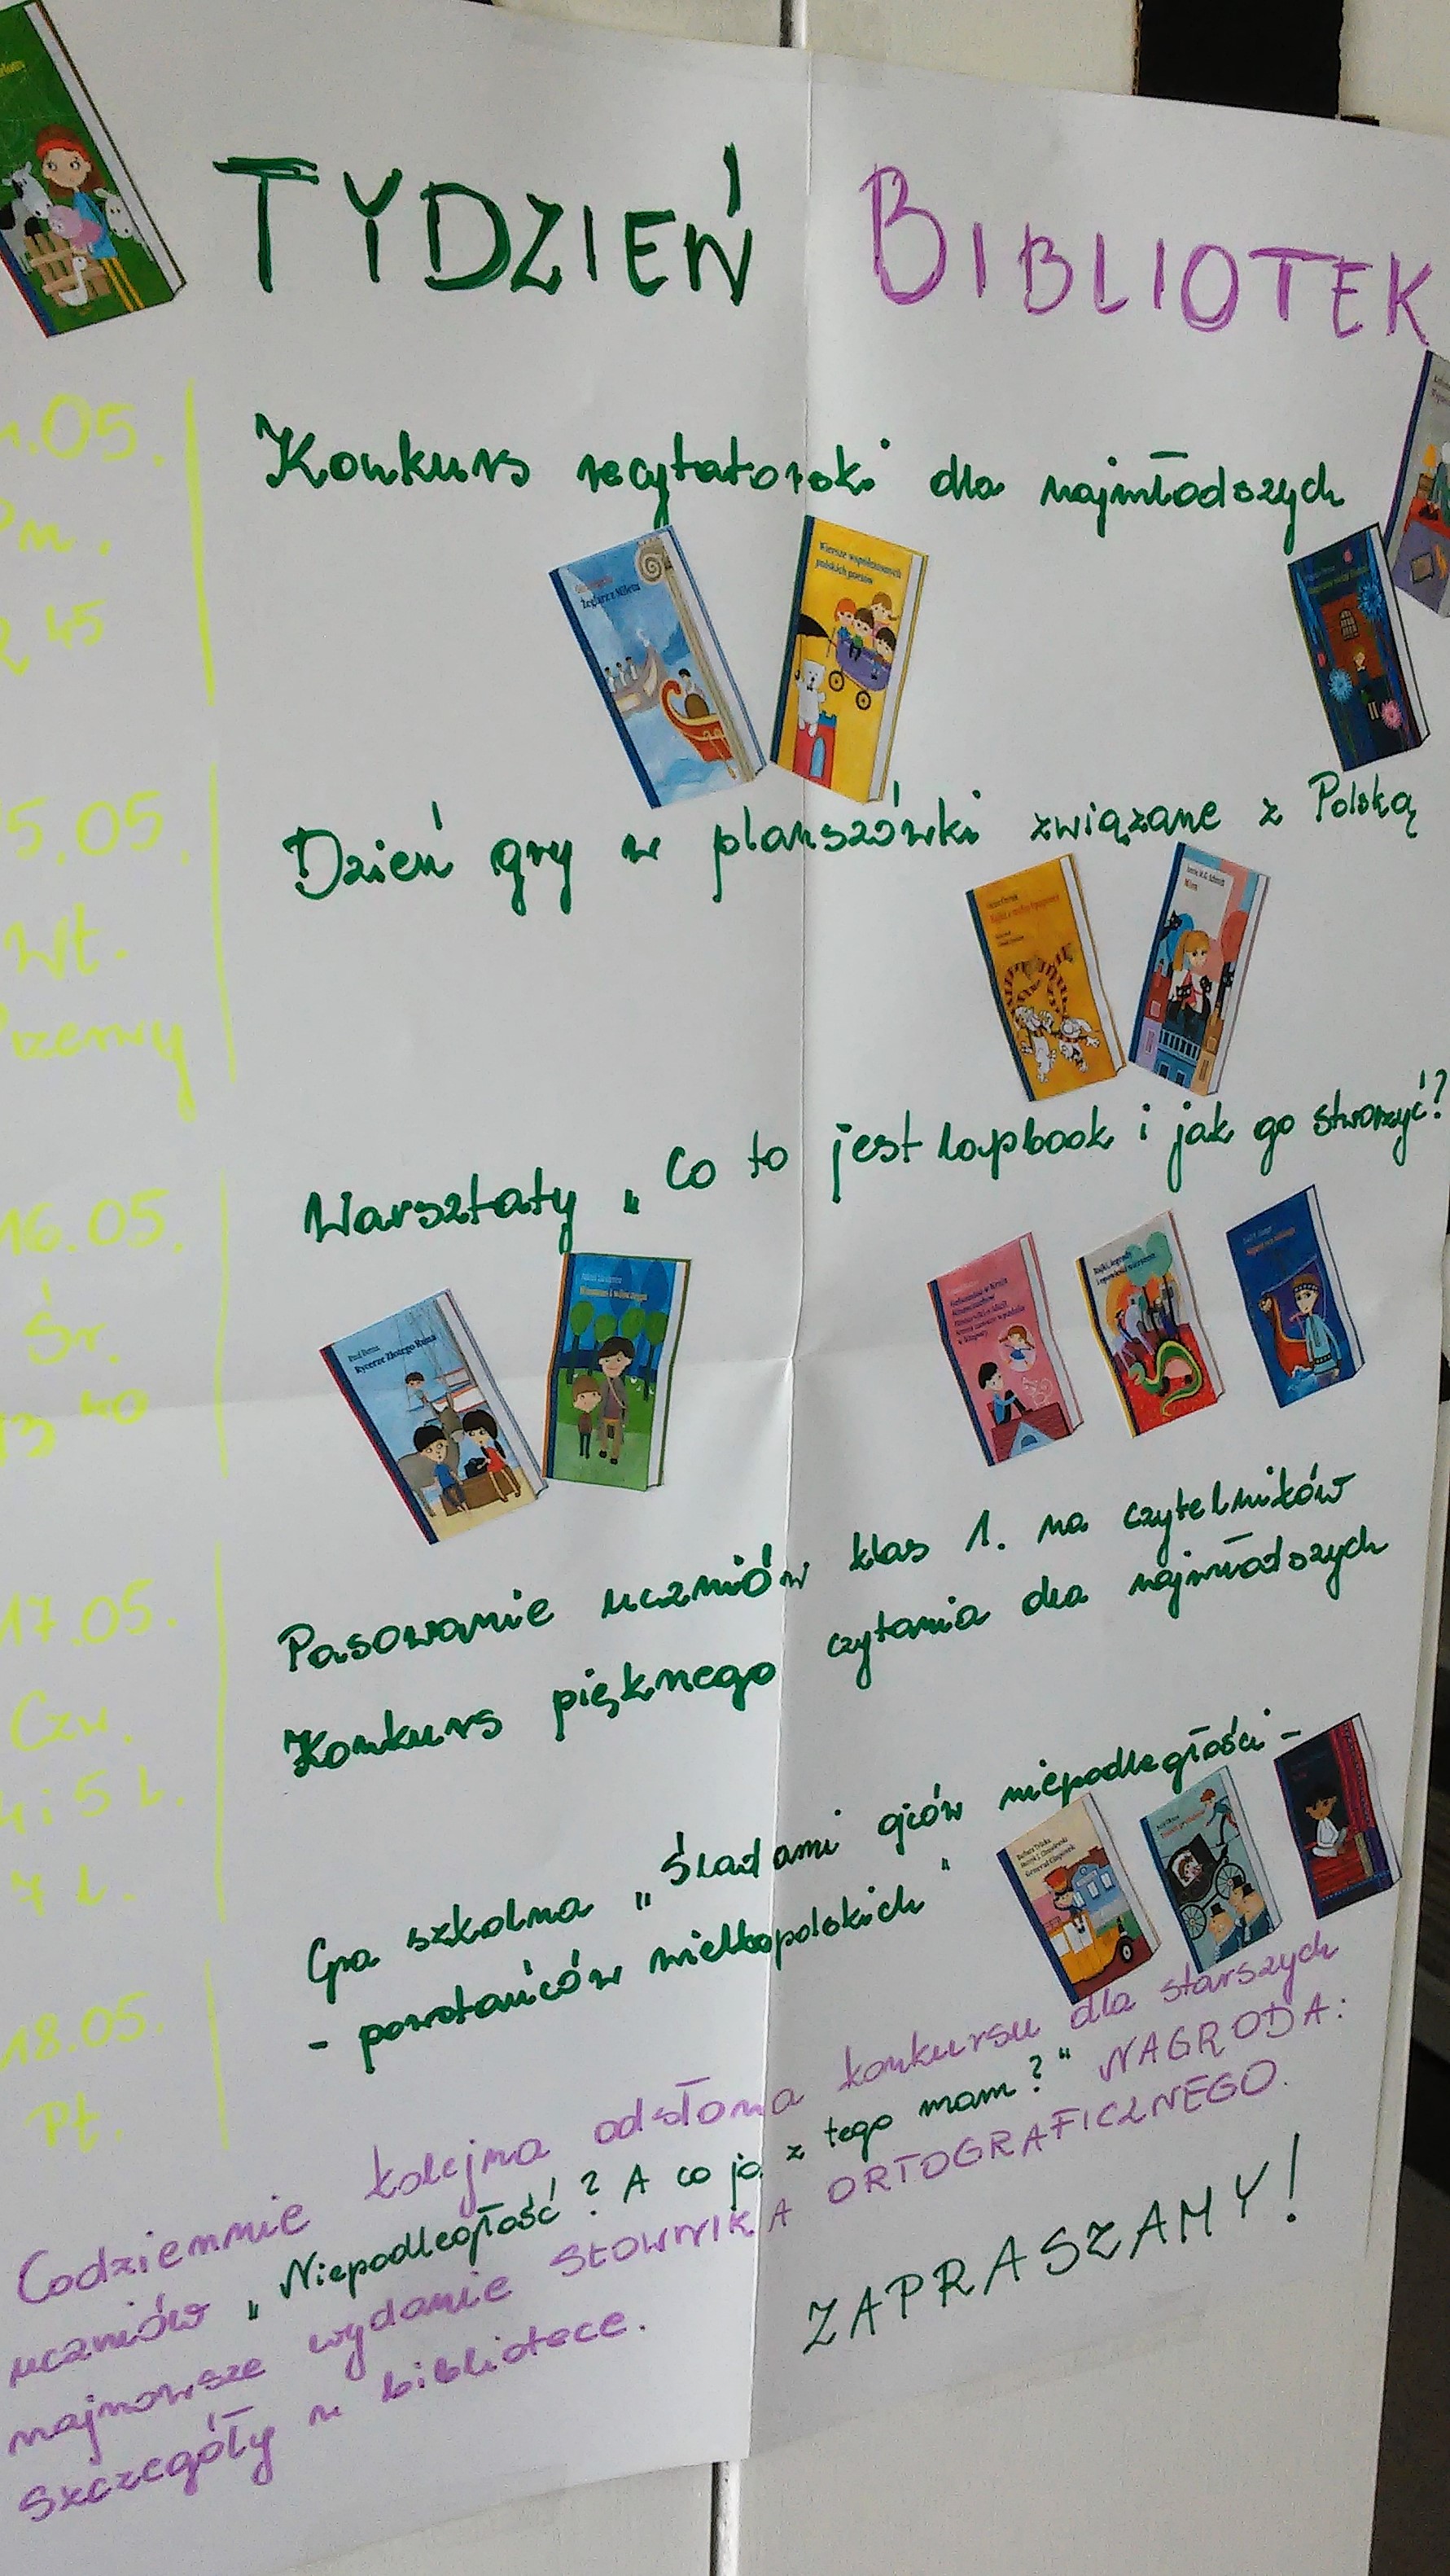 TYDZIEŃ BIBLIOTEK
.05.
Pn.
45
Konkurs recytatorski dla najmłodszych
Żeglarz z Miletu
Wiersze współczesnych
polskich poetów
5.05.
Wt.
Przerwy
Dzień gry w planszówki związane z Polską
16.05.
Śr.
13 40
Warsztaty „Co to jest lapbook i jak go stworzyć?
Rycerze Złotego Runa
17.05.
Czw.
4 i 5 l.
7 l.
Pasowanie uczniów klas 1. na czytelników
Konkurs pięknego czytania dla najmłodszych
18.05.
Pt.
Gra szkolna „Śladami ojców niepodległości -
- powstańców wielkopolskich"
Codziennie kolejna odsłona konkursu dla starszych
uczniów „Niepodległość? A co ja z tego mam?" NAGRODA:
najnowsze wydanie SŁOWNIKA ORTOGRAFICZNEGO.
Szczegóły w bibliotece.
ZAPRASZAMY!